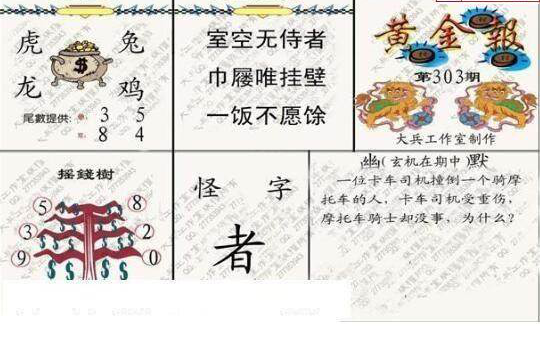 虎 兔
龙 鸡
尾數提供: 3 5
8 4
室空无侍者
巾屦唯挂壁
一饭不愿馀
黄金報
第303期
大兵工作室制作
摇錢樹
5 8
3 2
9 0
怪 字
者
幽(玄机在期中 默
一位卡车司机撞倒一个骑摩
托车的人，卡车司机受重伤，
摩托车骑士却没事，为什么？